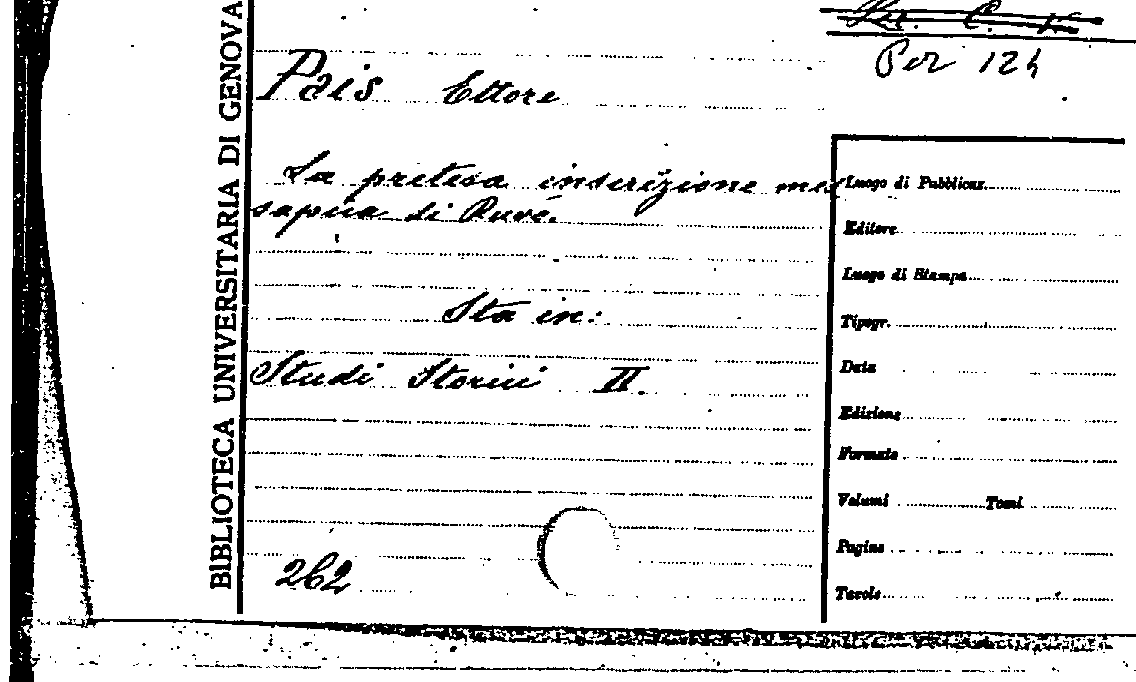 BIBLIOTECA UNIVERSITARIA DI GENOVA
Per 124
Pais Ettore
La pretesa inscrizione mes
sapica di Ruvo.
Sta in:
Studi Storici II.
262
Luogo di Pubblicaz.
Editore
Luogo di Stampa
Tipogr.
Data
Edizione
Formato
Volumi Tomi
Pagine
Tavole